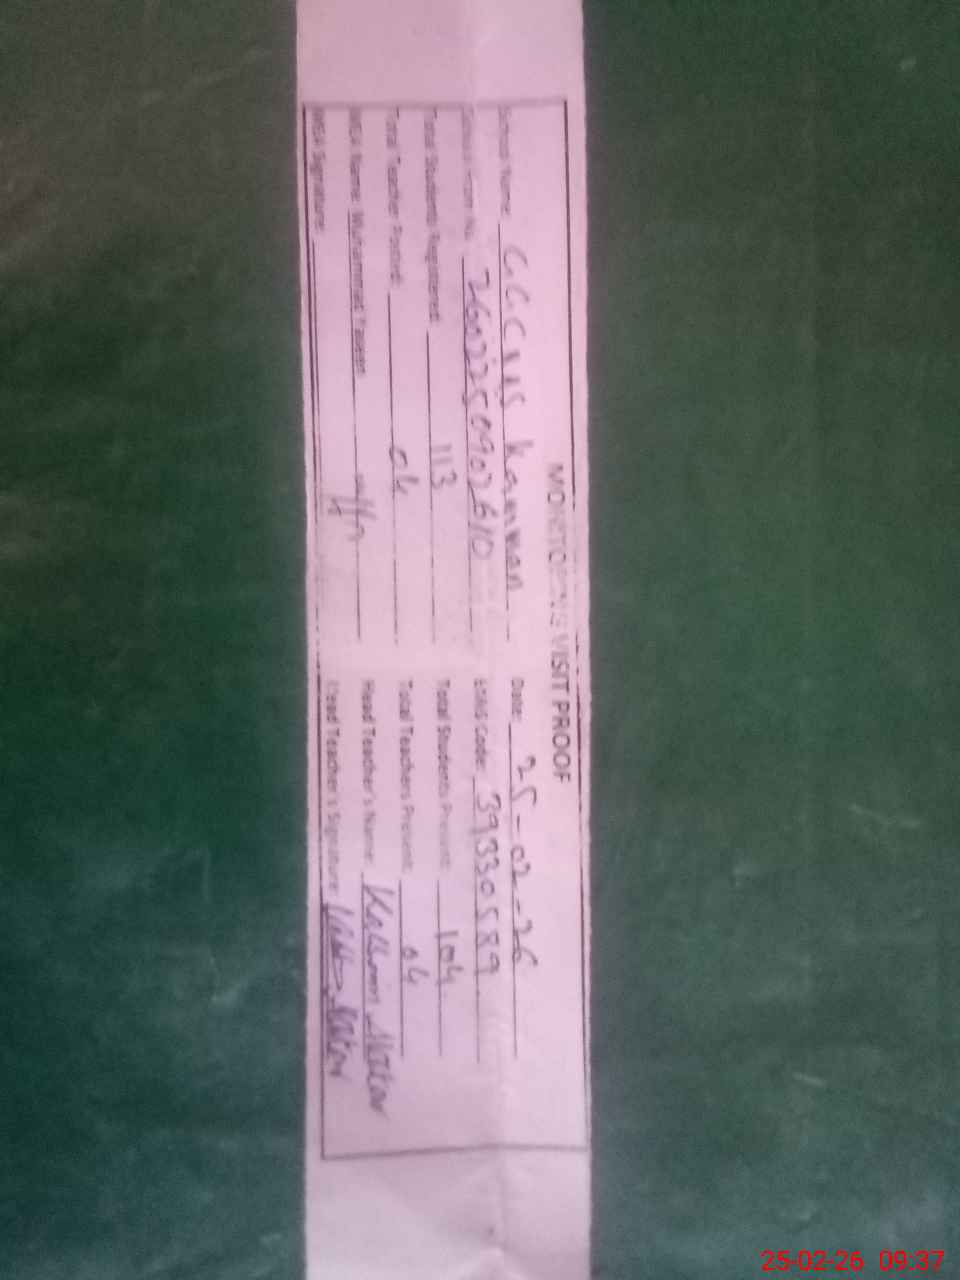 MONITORING VISIT PROOF
School Name: Date: 25-02-26
No. 2602250902610 EMIS Code: 39330589
Total Students Registered: 113 Total Students Present: 104
Total Teacher Posted: 04 Total Teachers Present: 04
MEA Name: Muhammad Head Teacher's Name:
MEA Signature: Head Teacher's Signature:
25-02-26 09:37